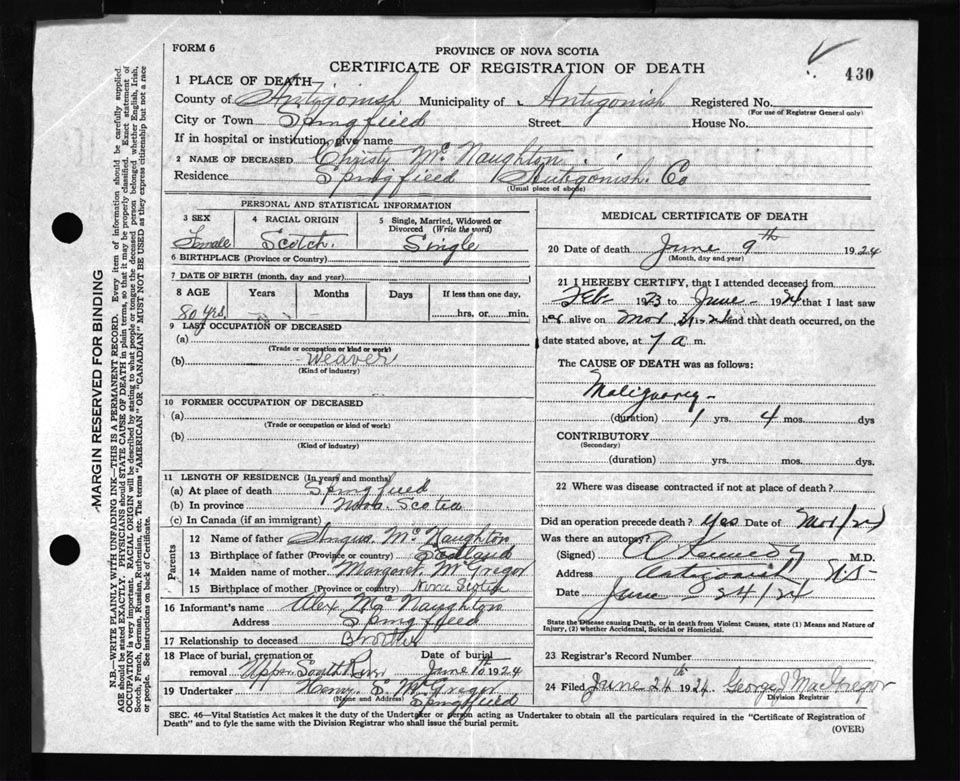 FORM 6
PROVINCE OF NOVA SCOTIA
CERTIFICATE OF REGISTRATION OF DEATH
430
1 PLACE OF DEATH—
County of Antigonish Municipality of Antigonish Registered No.
(For use of Registrar General only)
City or Town Springfieed Street House No.
If in hospital or institution, give name
2 NAME OF DECEASED Christy Mc Naughton
Residence Springfieed Antigonish. Co
(Usual place of abode)
PERSONAL AND STATISTICAL INFORMATION
3 SEX 4 RACIAL ORIGIN 5 Single, Married, Widowed or Divorced (Write the word)
Female Scotch. Single
6 BIRTHPLACE (Province or Country)
7 DATE OF BIRTH (month, day and year)
8 AGE Years Months Days If less than one day,
80 yrs. hrs. or min.
9 LAST OCCUPATION OF DECEASED
(a)
(Trade or occupation or kind of work)
(b) Weaver
(Kind of industry)
10 FORMER OCCUPATION OF DECEASED
(a)
(Trade or occupation or kind of work)
(b)
(Kind of industry)
11 LENGTH OF RESIDENCE (In years and months)
(a) At place of death Springfieed
(b) In province Nova Scotia
(c) In Canada (if an immigrant)
Parents
12 Name of father Angus Mc Naughton
13 Birthplace of father (Province or country) Scotland
14 Maiden name of mother Margaret McGregor
15 Birthplace of mother (Province or country) Nova Scotia
16 Informant's name Alex Mc Naughton
Address Springfieed
17 Relationship to deceased Brother
18 Place of burial, cremation or removal Upper South River Date of burial June 1924
19 Undertaker Henry McGregor
(Name and Address) Springfieed
MEDICAL CERTIFICATE OF DEATH
20 Date of death June 9th 1924
(Month, day and year)
21 I HEREBY CERTIFY, that I attended deceased from
Feb 1923 to June 1924 that I last saw
her alive on and that death occurred, on the
date stated above, at 7 a m.
The CAUSE OF DEATH was as follows:
Malignancy
(duration) 1 yrs. 4 mos. dys
CONTRIBUTORY
(Secondary)
(duration) yrs. mos. dys.
22 Where was disease contracted if not at place of death?
Did an operation precede death? Yes Date of
Was there an autopsy?
(Signed) M.D.
Address Antigonish, NS
Date June 24/24
State the Disease causing Death, or in death from Violent Causes, state (1) Means and Nature of Injury, (2) whether Accidental, Suicidal or Homicidal.
23 Registrar's Record Number
24 Filed June 24th 1924 George J MacGregor
Division Registrar
SEC. 46—Vital Statistics Act makes it the duty of the Undertaker or person acting as Undertaker to obtain all the particulars required in the "Certificate of Registration of
Death" and to fyle the same with the Division Registrar who shall issue the burial permit.
(OVER)
MARGIN RESERVED FOR BINDING
N.B.—WRITE PLAINLY WITH UNFADING INK—THIS IS A PERMANENT RECORD. Every item of information should be carefully supplied.
AGE should be stated EXACTLY. PHYSICIANS should STATE CAUSE OF DEATH in plain terms, so that it may be properly classified. Exact statement of
OCCUPATION is very important. RACIAL ORIGIN will be described by stating to what people or tongue the deceased person belonged whether English, Irish,
Scotch, French, German, Russian, Ruthenian, etc. The terms "AMERICAN" OR "CANADIAN" MUST NOT BE USED as they express citizenship but not a race
or people. See instructions on back of Certificate.